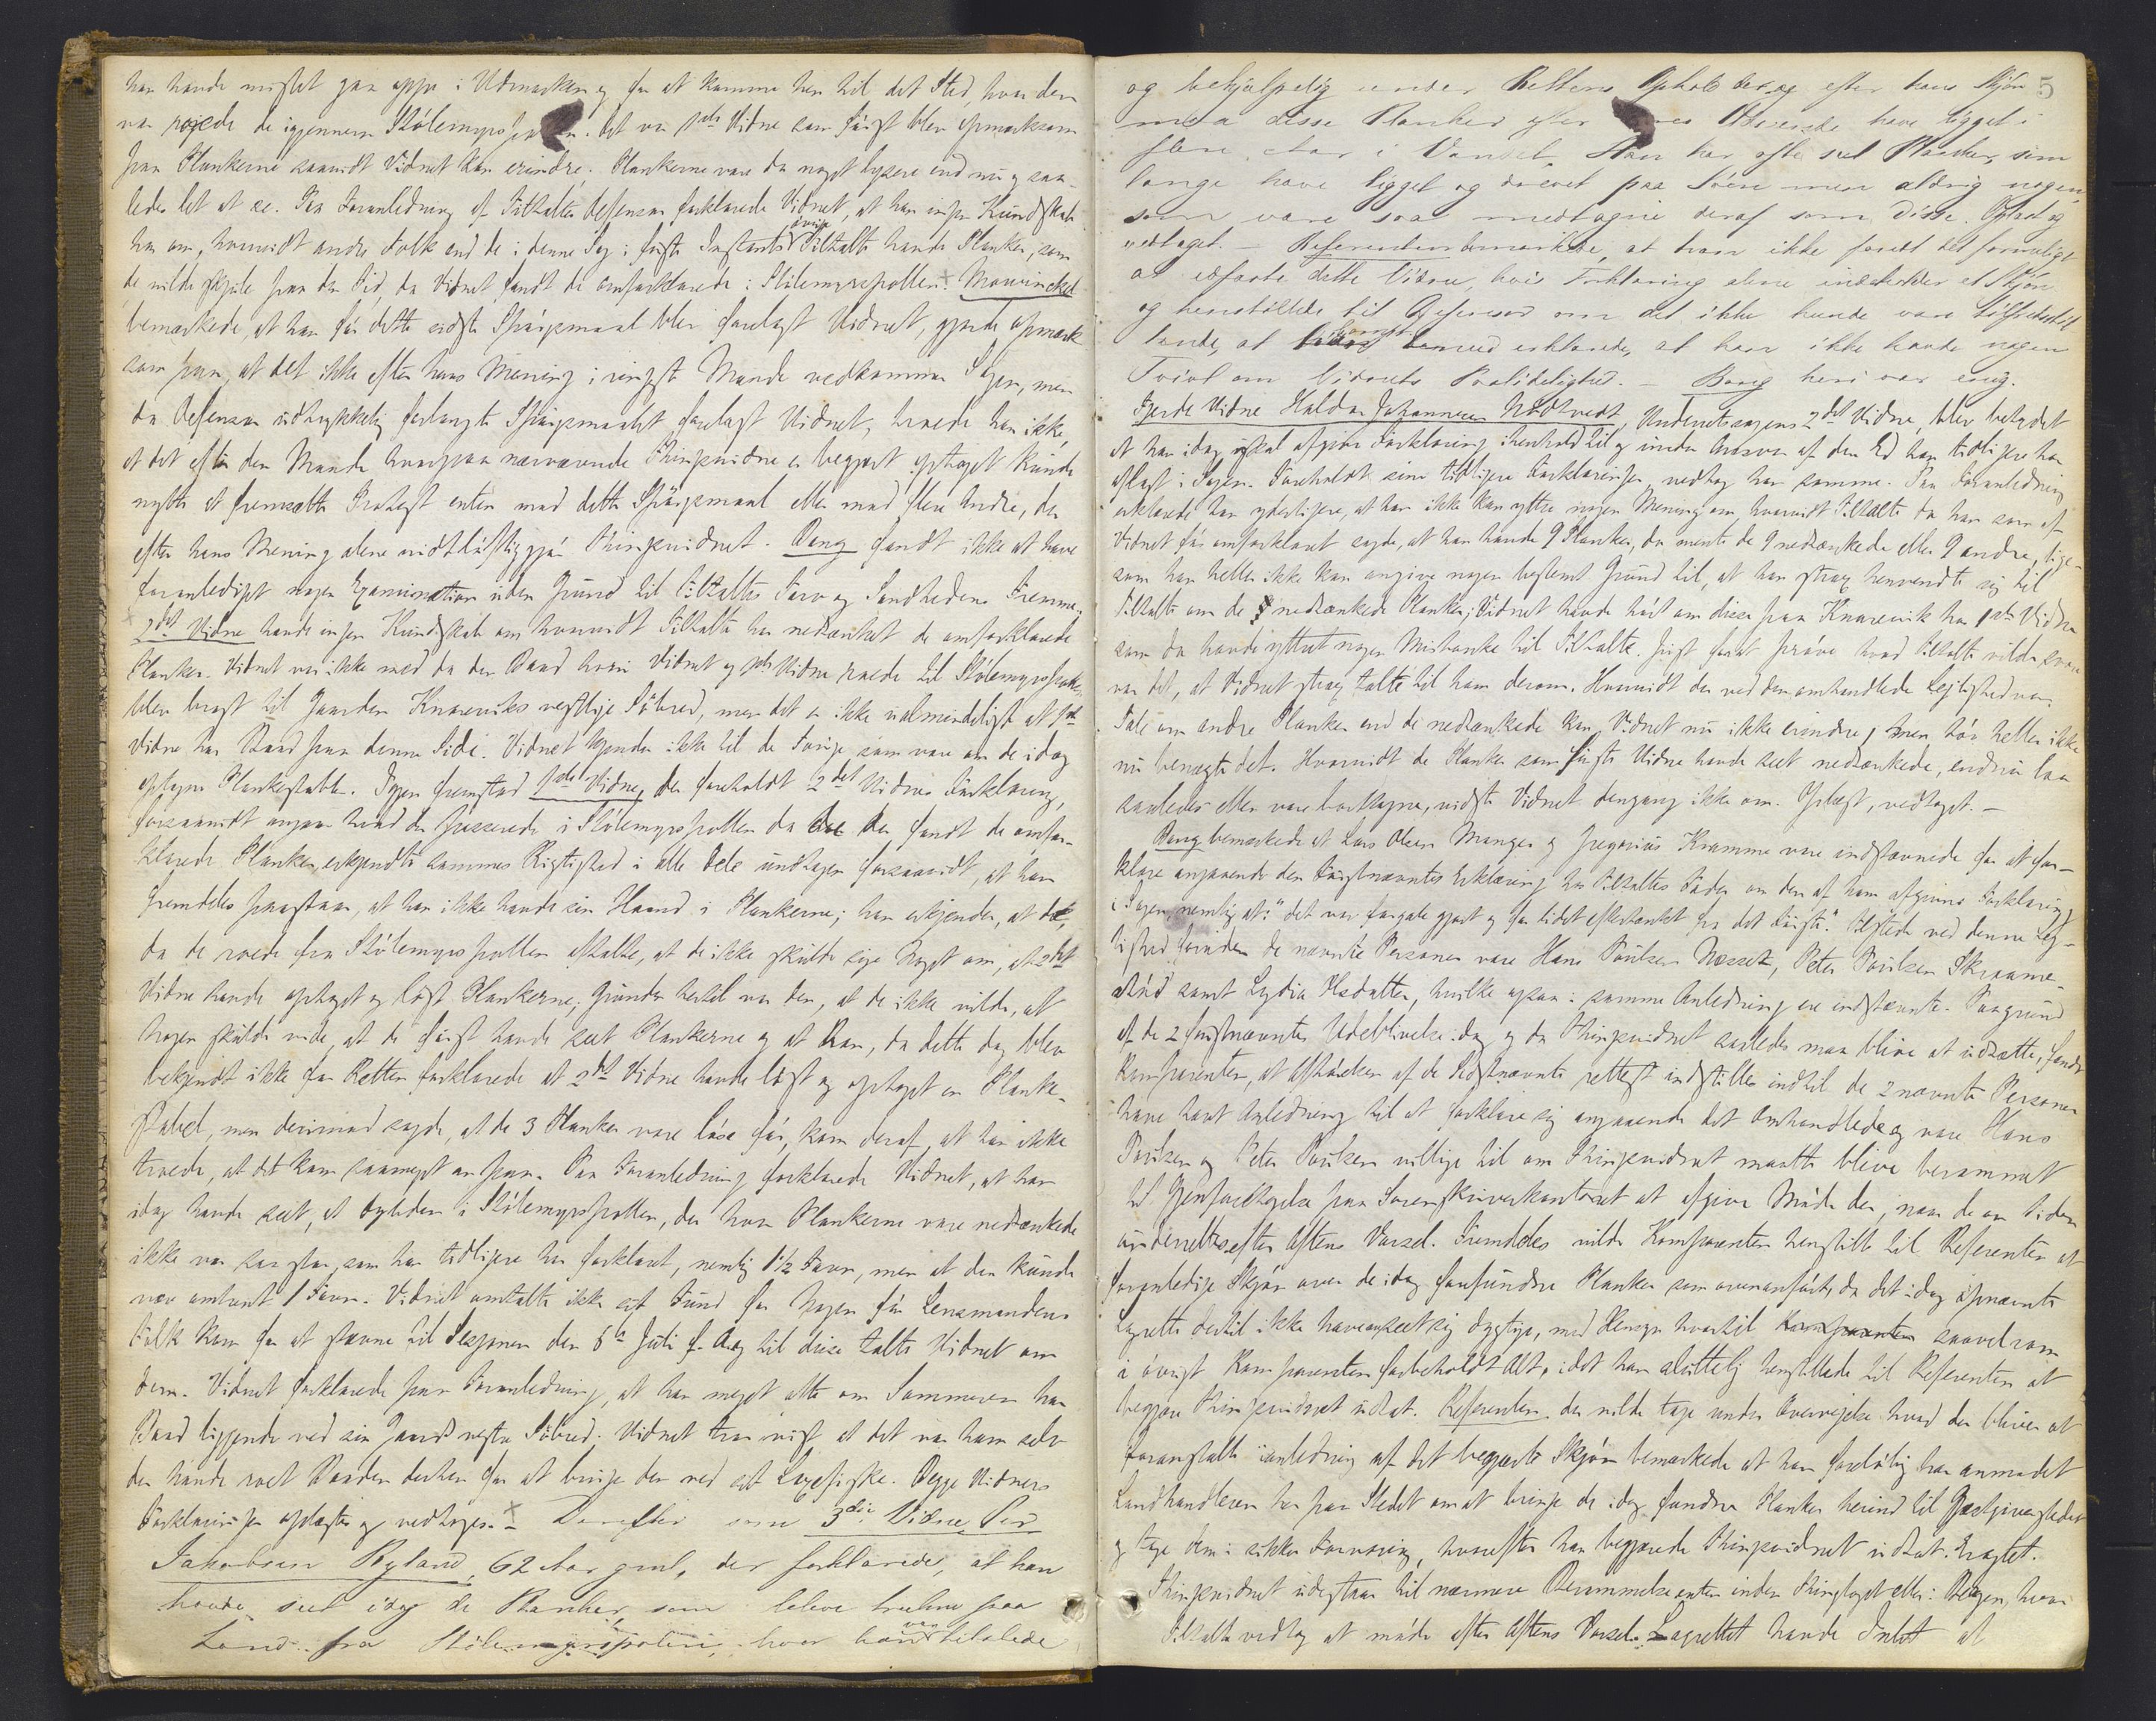 han havde mistet gaa oppe i Udmarken og for at komme hen til det Sted, hvor den
var roede de igjennem Stølemyrspollen. Det var 1ste Vidne som først blev opmærksom
paa Plankerne saavidt Vidnet kan erindre. Plankerne vare da noget lysere end nu og saa-
ledes let at se. Paa Foranledning af Tiltaltes Defensor forklarede Vidnet, at han ingen Kundskab
har om, hvorvidt andre Folk end de i denne Sag i første Instants øvrige Tiltalte havde Planker, som
de vilde skjule paa den Tid, da Vidnet fandt de omforklarede i Stølemyrspollen. + Mowinckel
bemærkede, at han før dette sidste Spørgsmaal blev forelagt Vidnet, gjorde opmærk-
som paa, at det ikke efter hans Mening i ringeste Maade vedkommer Sagen, men
da Defensor udtrykkelig forlangte Spørgsmaalet forelagt Vidnet, troede han ikke,
at det efter den Maade hvorpaa nærværende Thingsvidne er begjært optaget kunde
nytte at fremsætte Protest enten mod dette Spørgsmaal eller mod flere Andre, der
efter hans Mening alene vidtløftiggjør Thingsvidnet. Bang fandt ikke at have
foranlediget nogen Examination uden Grund til Tiltaltes Tarv og Sandhedens Fremme.
+ 2det Vidne havde ingen Kundskab om hvorvidt Tiltalte har nedsænket de omforklarede
Planker. Vidnet var ikke med da den Baad hvori Vidnet og 1ste Vidne roede til Stølemyrspollen
blev bragt til Gaarden Knarreviks vestlige Søbred, men det er ikke ualmindeligt at 1ste
Vidne har Baad paa denne Side. Vidnet kjender ikke til de Touge som vare om de idag
optagne Plankestabler. Igjen fremstod 1ste Vidne, der foreholdt 2det Vidnes Forklaring,
forsaavidt angaar hvad der passerede i Stølemyrspollen da de der fandt de omfor-
klarede Planker, erkjendte sammes Rigtighed i alle Dele undtagen forsaavidt, at han
fremdeles paastaar, at han ikke havde sin Haand i Plankerne; han erkjender, at de,
da de roede fra Stølemyrspollen aftalte, at de ikke skulde sige Noget om, at 2det
Vidne havde optaget og løst Plankerne; Grunden hertil var den, at de ikke vilde, at
Nogen skulde vide, at de først havde seet Plankerne og at han, da dette dog blev
bekjendt ikke for Retten forklarede at 2det Vidne havde løst og optaget en Planke-
stabel, men derimod sagde, at de 3 Planker vare løse før, kom deraf, at han ikke
troede, at det kom saameget an paa. Paa Foranledning forklarede Vidnet, at han
idag havde seet, at Dybden i Stølemyrspollen, der hvor Plankerne vare nedsænkede
ikke var saa stor, som han tidligere har forklaret, nemlig 1½ Favn, men at den kunde
være omtrent 1 Favn. Vidnet omtalte ikke sit Fund for Nogen før Lensmandens
Folk kom for at stævne til Sessionen den 6te Juli f. A. og til disse talte Vidnet om
dem. Vidnet forklarede paa Foranledning, at han meget ofte om Sommeren har
Baad liggende ved sin Gaards vestre Søbred. Vidnet tror vist at det var ham selv
der havde roet Baaden derhen for at bruge den ved sit Laxefiske. Begge Vidners
Forklaringer oplæste og vedtagne. + Derefter som 3die Vidne Per
Jakobsen Ryland, 62 Aar gml, der forklarede, at han
havde seet idag de Planker, som bleve trukne paa
Land fra Stølemyrspollen, hvor han var tilstede
5
og behjælpelig under Rettens Ophold der og efter hans Skjøn
maa disse Planker efter Udseende have ligget i
flere Aar i Vandet. Han har ofte seet Planker, som
længe have ligget og drevet paa Søen men aldrig nogen,
som vare saa medtagne deraf som disse. Oplæst og
vedtaget. — Referenten bemærkede, at han ikke fandt det fornødigt
at edfæste dette Vidne, hvis Forklaring alene indeholder et Skjøn
og henstillede til Defensor om det ikke kunde være tilfredsstil-
lende, at Komp. herved erklærede, at han ikke havde nogen
Tvivl om Vidnets Paalidelighed. — Bang heri var enig.
Fjerde Vidne Haldor Johannesen Nødtvedt, Underretssagens 2det Vidne, blev betydet
at han idag skal afgive Forklaring ihenhold til og under Ansvar af den Ed han tidligere har
aflagt i Sagen. Foreholdt sine tidligere Forklaringer, vedtog han samme. Paa Foranledning
erklærede han yderligere, at han ikke kan yttre nogen Mening om, hvorvidt Tiltalte da han som af
Vidnet før omforklaret sagde, at han havde 9 Planker, da mente de 9 nedsænkede eller 9 andre, lige-
som han heller ikke kan angive nogen bestemt Grund til, at han strax henvendte sig til
Tiltalte om de nedsænkede Planker; Vidnet havde hørt om disse paa Knarrevik hos 1ste Vidne
som da havde yttret nogen Mistanke til Tiltalte. Just forat prøve hvad Tiltalte vilde svare
var det, at Vidnet strax talte til ham derom. Hvorvidt der ved den omhandlede Lejlighed var
Tale om andre Planker end de nedsænkede kan Vidnet nu ikke erindre, men tør heller ikke
nu benægte det. Hvorvidt de Planker som første Vidne havde seet nedsænkede, endnu laa
saaledes eller vare borttagne, vidste Vidnet dengang ikke om. Oplæst, vedtaget. —
Bang bemærkede at Lars Olsen Manger og Gregorius Kramme vare indstævnede for at for-
klare angaaende den Førstnævntes Erklæring hos Tiltaltes Fader om den af ham afgivne Forklaring
i Sagen, nemlig at: "det var forgale gjort og for lidet eftertænkt fra det Første". Tilstede ved denne Lej-
lighed foruden de nævnte Personer vare Hans Poulsen Næsset, Peter Poulsen Skraame-
stød samt Lydia Olsdatter, hvilke ogsaa i samme Anledning ere indstævnte. Paagrund
af de 2 førstnævntes Udeblivelse idag og da Thingsvidnet saaledes maa blive at udsætte, fandt
Komparenten, at Afhørelsen af de Sidstnævnte rettest indstilles indtil de 2 nævnte Personer
have havt Anledning til at forklare sig angaaende det Omhandlede og vare Hans
Poulsen og Peter Poulsen villige til om Thingsvidnet maatte blive berammet
til Gjenforetagelse paa Sorenskriverkontoret at afgive Møde der, naar de om Tiden
underrettes efter Aftens Varsel. Fremdeles vilde Komparenten henstille til Referenten at
foranledige Skjøn over de idag forefundne Planker som ovenanført, da det idag opnævnte
Lagrette dertil ikke have anseet sig dygtige, med Hensyn hvortil saavelsom
i øvrigt Komparenten forbeholdt Alt, idet han sluttelig henstillede til Referenten at
begjære Thingsvidnet udsat. Referenten der vilde tage under Overvejelse hvad der bliver at
foranstalte i anledning af det begjærte Skjøn bemærkede at han foreløbig har anmodet
Landhandleren her paa Stedet om at bringe de idag fundne Planker herind til Gjæstgiverstedet
og tage dem i sikker Forvaring, hvorefter han begjærede Thingsvidnet udsat. Eragtet.
Thingsvidnet udestaar til nærmere Berammelse enten inden Thinglaget eller i Bergen, hvor
Tiltalte vedtog at møde efter Aftens Varsel. Lagrettet havde Intet at